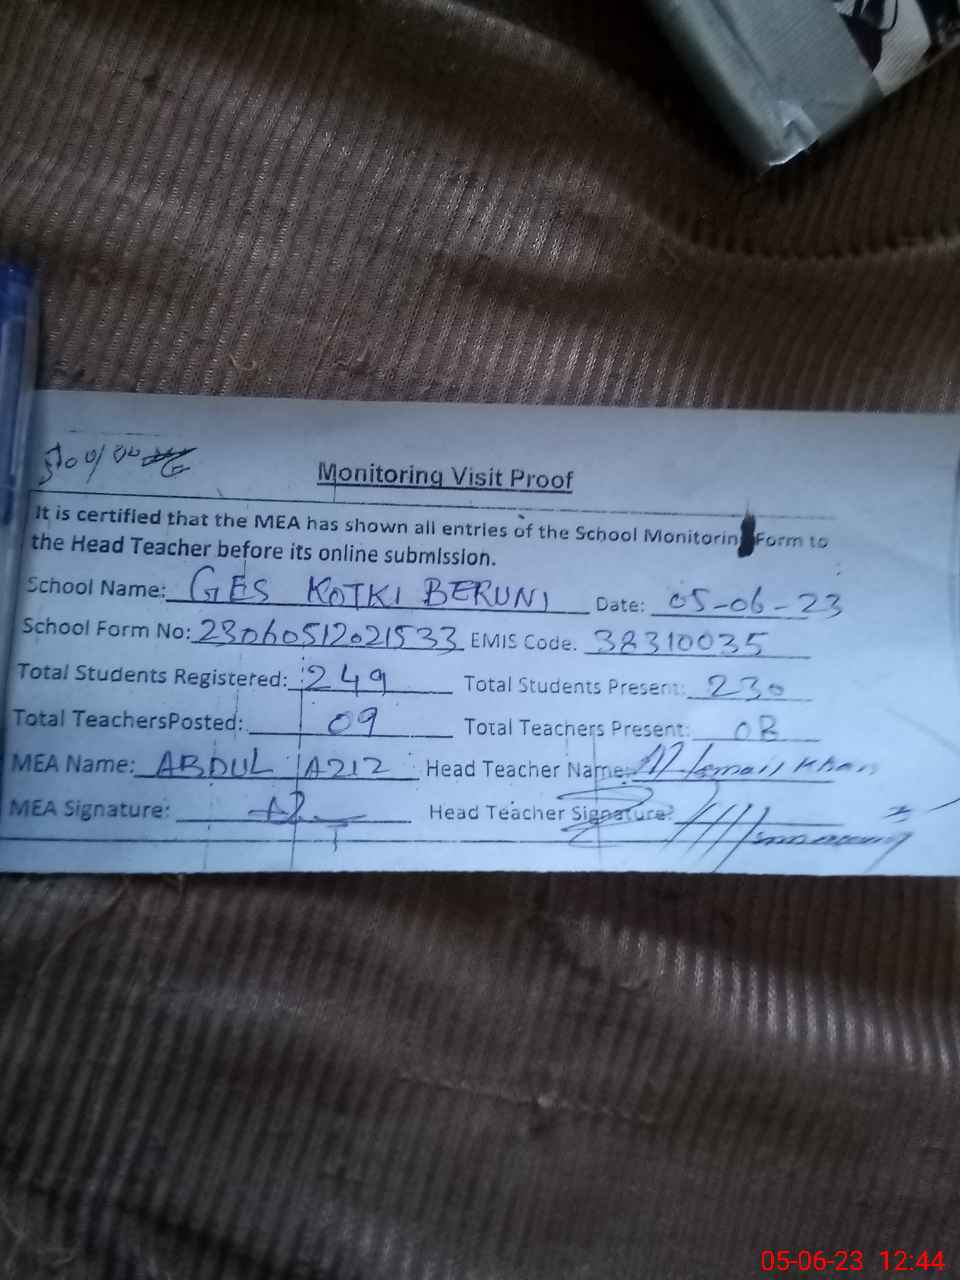 Monitoring Visit Proof
It is certified that the MEA has shown all entries of the School Monitorin Form to
the Head Teacher before its online submission.
School Name: GES KOTKI BERUNI Date: 05-06-23
School Form No: 23060512021533 EMIS Code. 38310035
Total Students Registered: 249 Total Students Present: 230
Total TeachersPosted: 09 Total Teachers Present: 08
MEA Name: ABDUL AZIZ Head Teacher Name: Ismail Khan
MEA Signature: Head Teacher Signature:
05-06-23 12:44